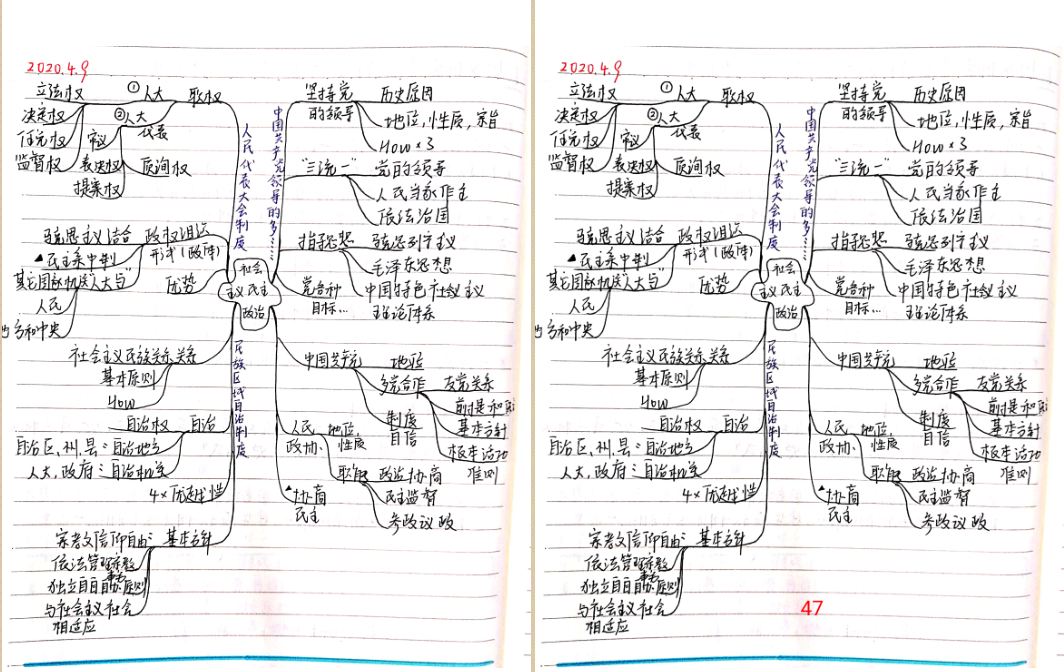 2020.4.9
立法权
① 人大
职权
决定权
②人大
代表
任免权
审议
监督权
表决权
质询权
提案权
人民代表大会制度
中国共产党领导的多……
坚持党
的领导
历史原因
地位,性质,宗旨
How×3
"三统一"
党的领导
人民当家作主
依法治国
指导思想
马克思列宁主义
毛泽东思想
中国特色社会主义
理论体系
党各种
目标...
马克思主义结合
政权组织
形式(政体)
▲民主集中制
其它国家机关"人大与"
人民
地方和中央
优势
社会
主义民主
政治
社会主义民族关系关系
基本原则
How
民族区域自治制度
自治权
自治
自治区,州,县:自治地方
人大,政府:自治机关
4×优越性
宗教信仰自由:
基本方针
依法管理宗教
事务
独立自主自办原则
与社会主义社会
相适应
中国共产党
地位
多党合作
友党关系
前提和
基本方针
根本活动
准则
制度
自信
人民
政协:
地位
性质
职能
政治协商
民主监督
参政议政
▲协商
民主
2020.4.9
立法权
① 人大
职权
决定权
②人大
代表
任免权
审议
监督权
表决权
质询权
提案权
人民代表大会制度
中国共产党领导的多……
坚持党
的领导
历史原因
地位,性质,宗旨
How×3
"三统一"
党的领导
人民当家作主
依法治国
指导思想
马克思列宁主义
毛泽东思想
中国特色社会主义
理论体系
党各种
目标...
马克思主义结合
政权组织
形式(政体)
▲民主集中制
其它国家机关"人大与"
人民
地方和中央
优势
社会
主义民主
政治
社会主义民族关系关系
基本原则
How
民族区域自治制度
自治权
自治
自治区,州,县:自治地方
人大,政府:自治机关
4×优越性
宗教信仰自由:
基本方针
依法管理宗教
事务
独立自主自办原则
与社会主义社会
相适应
中国共产党
地位
多党合作
友党关系
前提和
基本方针
根本活动
准则
制度
自信
人民
政协:
地位
性质
职能
政治协商
民主监督
参政议政
▲协商
民主
47